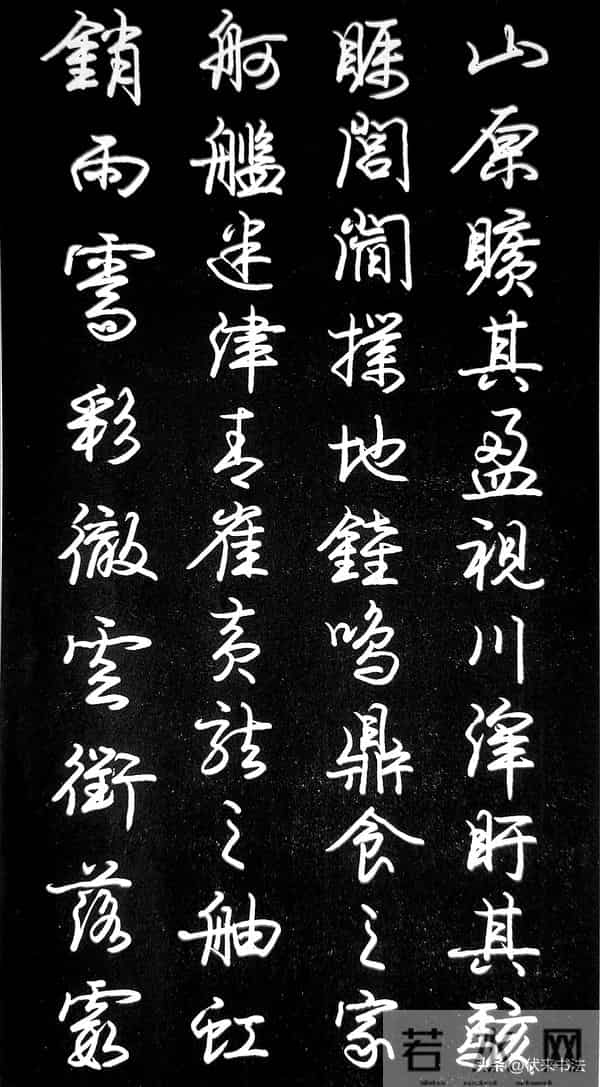 山原曠其盈視川澤盱其駭
瞩閭閻撲地鐘鳴鼎食之家
舸艦迷津青雀黃龍之舳虹
銷雨霽彩徹雲衢落霞
头条@伏来书法